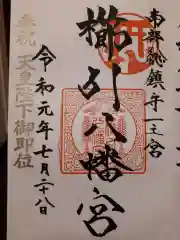 南部総鎮守一之宮
櫛引八幡宮
令和元年七月二十八日
奉祝 天皇陛下御即位